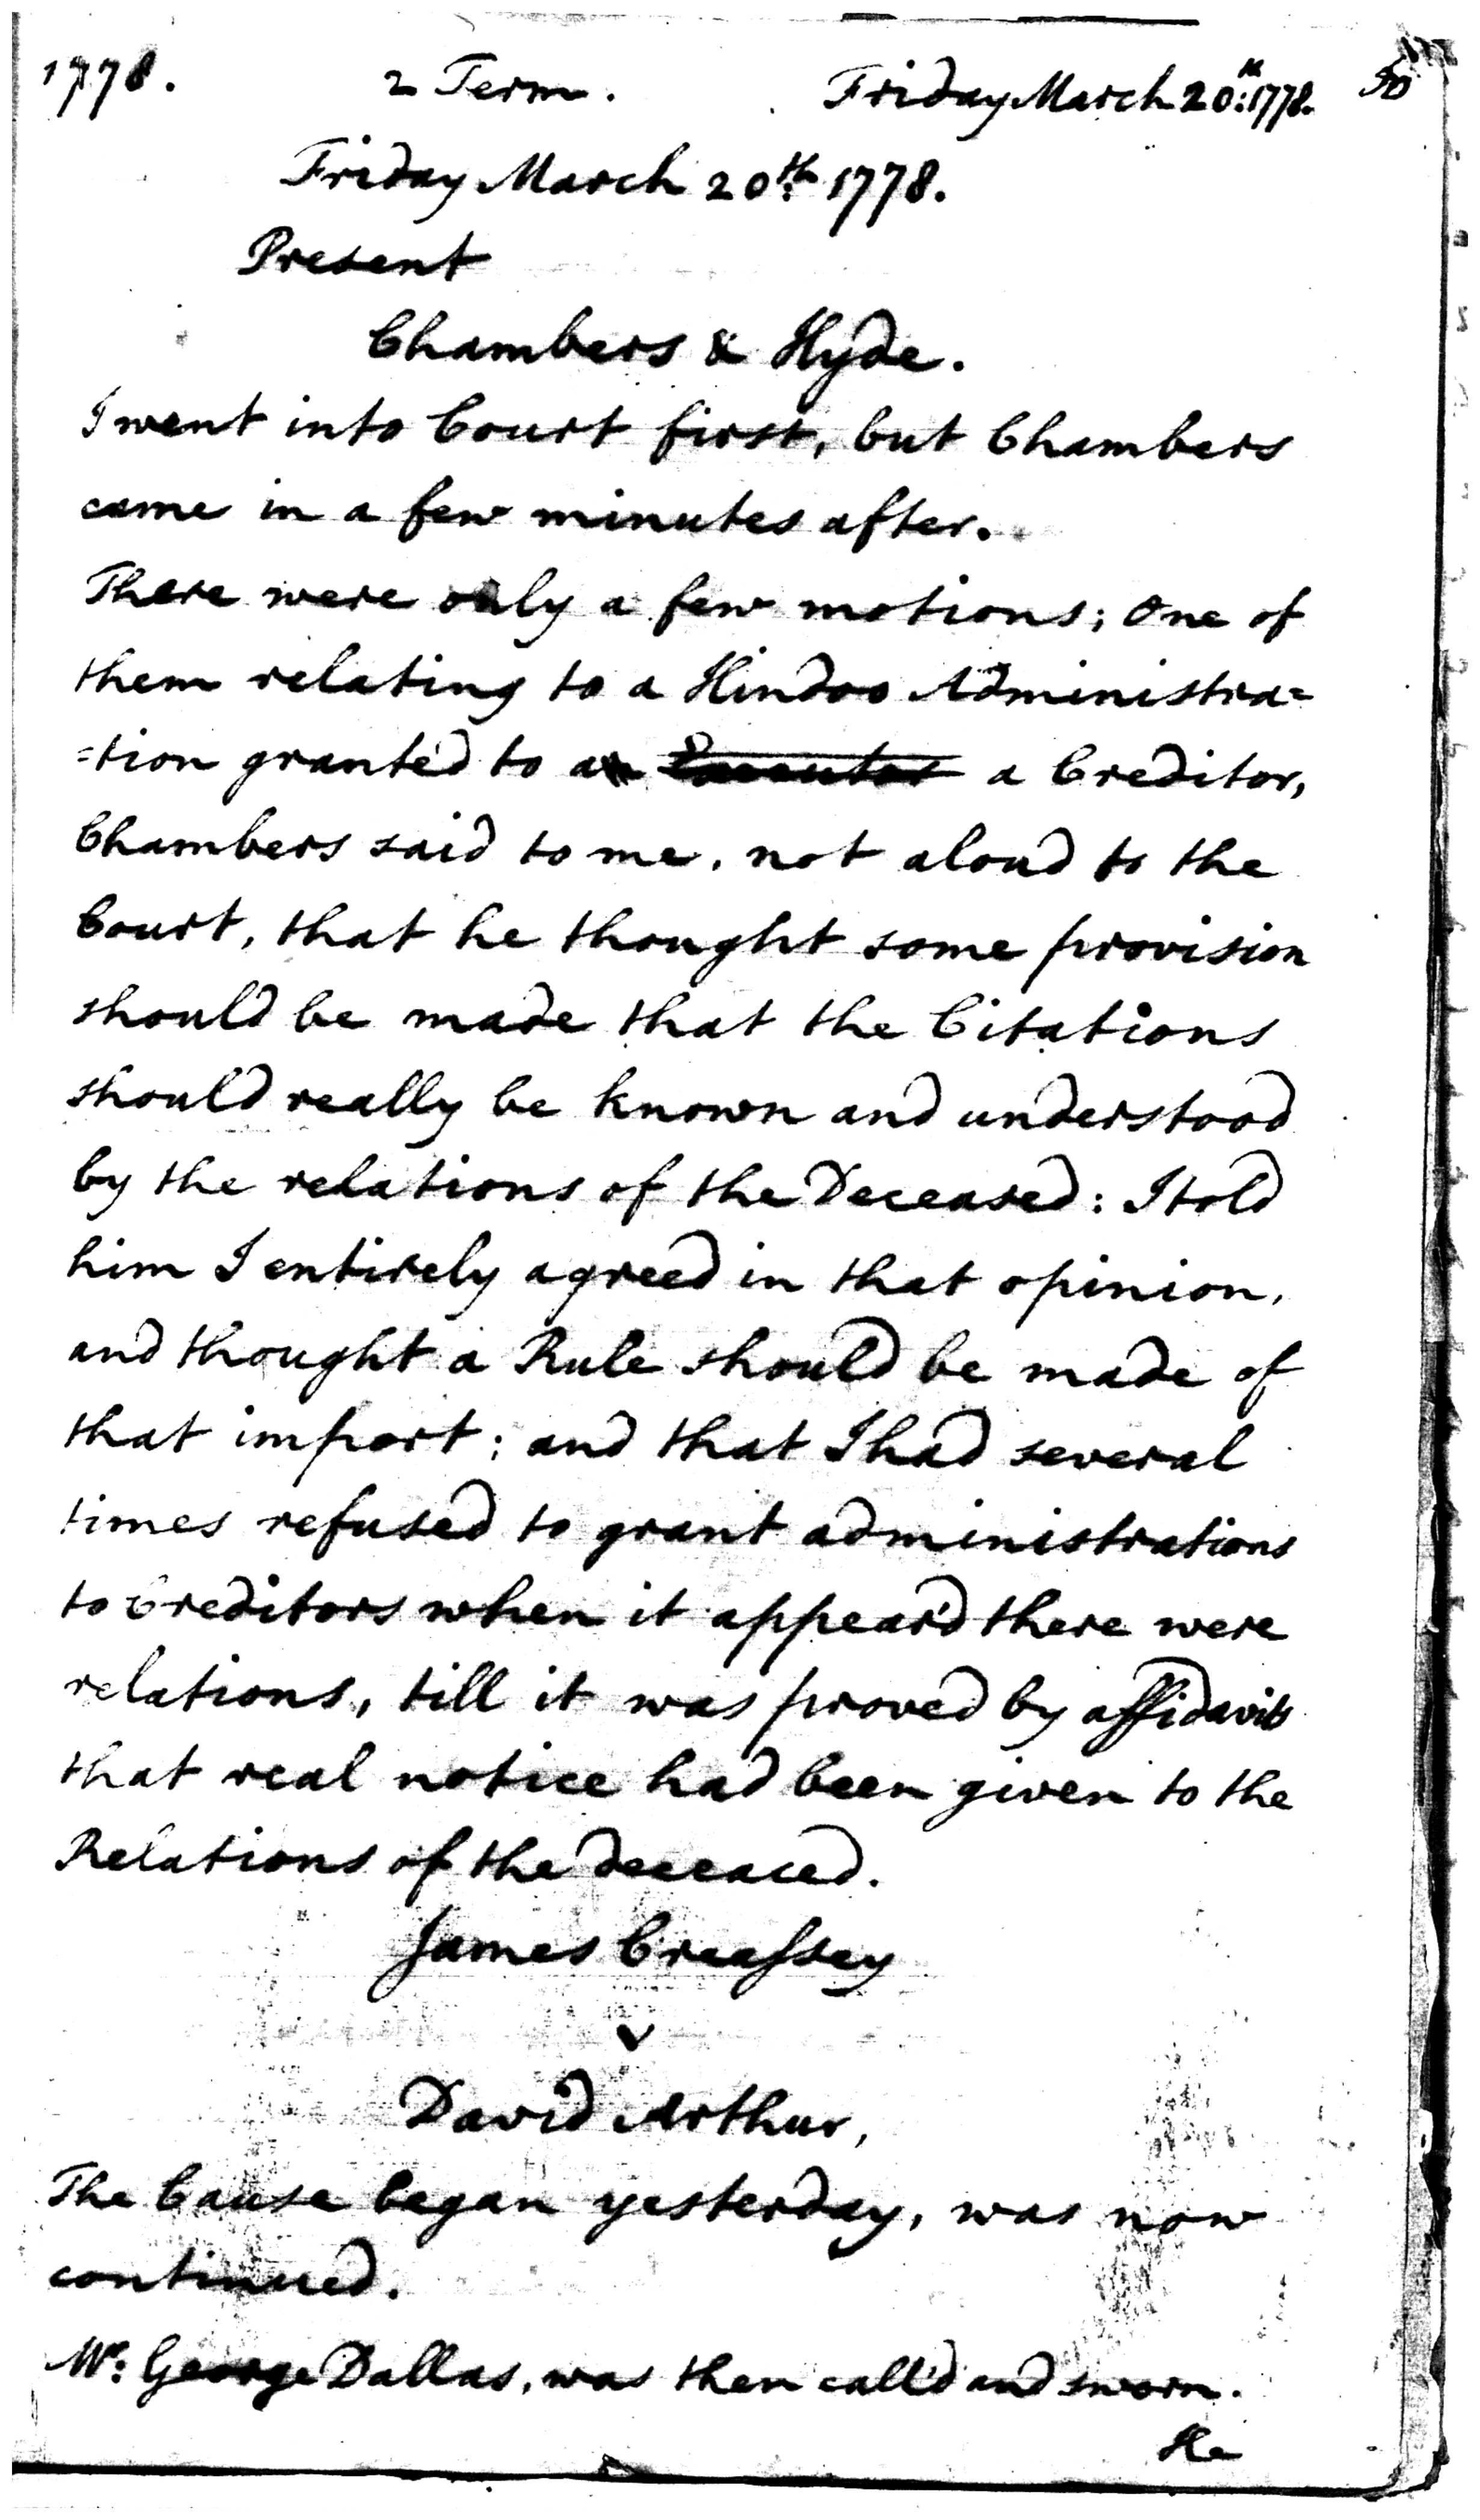 1778. 2 Term. Friday March 20:th 1778. 50
Friday March 20th: 1778.
Present
Chambers & Hyde.
I went into Court first, but Chambers
came in a few minutes after.
There were only a few motions; One of
them relating to a Hindoo Administra=
=tion granted to an Executor a Creditor,
Chambers said to me, not aloud to the
Court, that he thought some provision
should be made that the Citations
should really be known and understood
by the relations of the Deceased: I told
him I entirely agreed in that opinion,
and thought a Rule should be made of
that import; and that I had several
times refused to grant administrations
to Creditors when it appear'd there were
relations, till it was proved by affidavits
that real notice had been given to the
Relations of the deceased.
James Creaſsey
v
David Arthur,
The Cause began yesterday, was now
continued.
Mr: George Dallas, was then call'd and sworn.
He